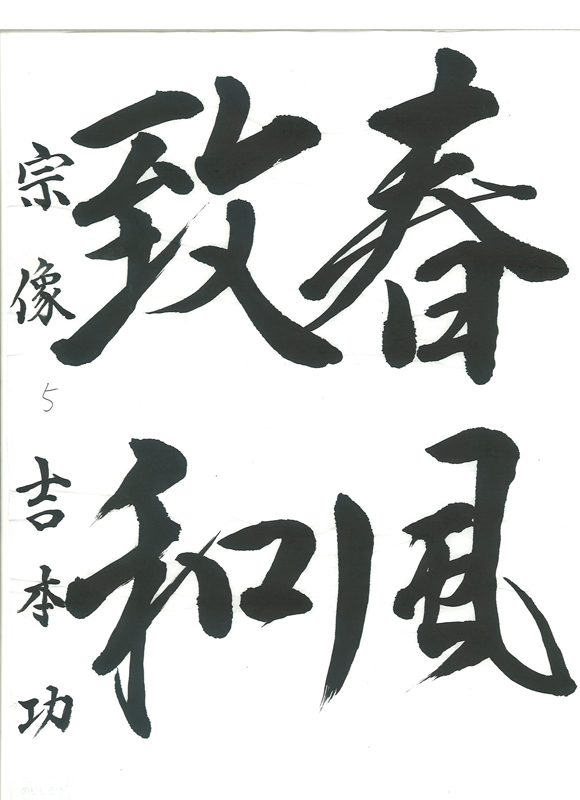 春風
致和
宗像 5 吉本功